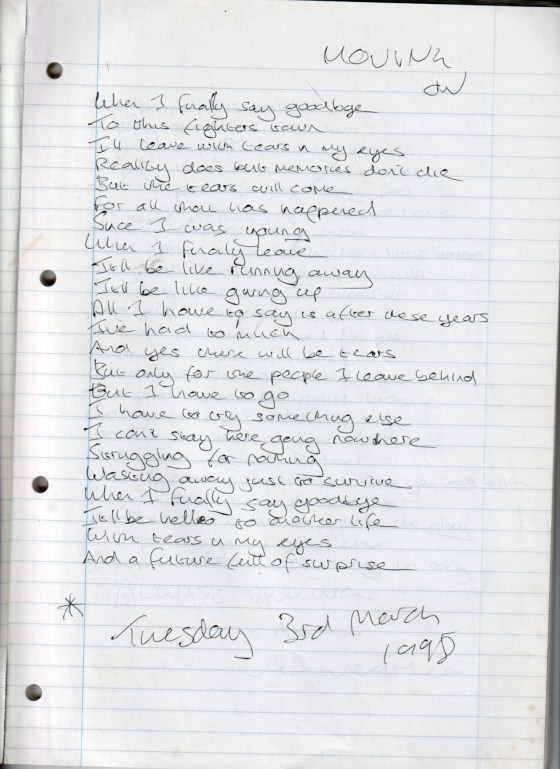 MOVING
ON
When I finally say goodbye
To this fighters town
I'll leave with tears in my eyes
Reality does but memories don't die
But the tears will come
For all that has happened
Since I was young
When I finally leave
It'll be like running away
It'll be like giving up
All I have to say is after these years
I've had to much
And yes there will be tears
But only for the people I leave behind
But I have to go
I have to try something else
I can't stay here going nowhere
Struggling for nothing
Wasting away just to survive
When I finally say goodbye
It'll be hello to another life
With tears in my eyes
And a future full of surprise
* Tuesday 3rd March
1998